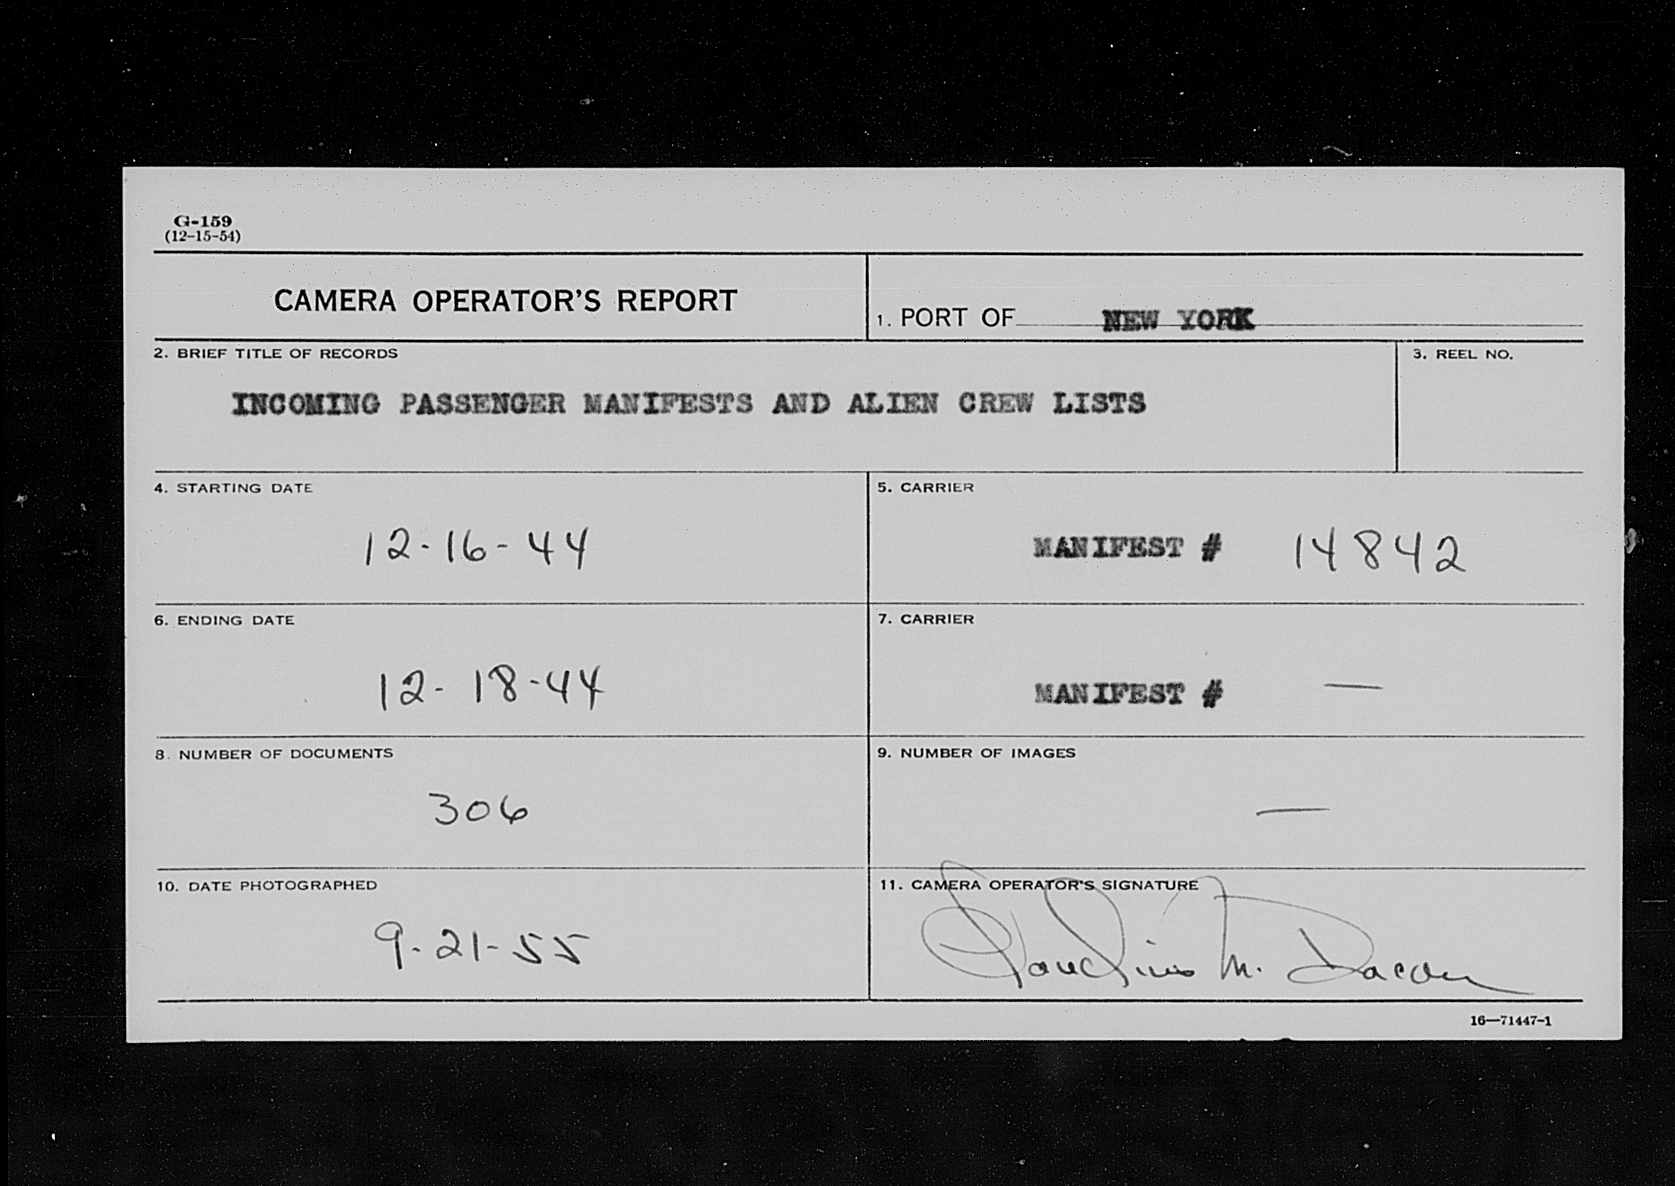 G-159
(12-15-54)
CAMERA OPERATOR'S REPORT
1. PORT OF NEW YORK
2. BRIEF TITLE OF RECORDS
3. REEL NO.
INCOMING PASSENGER MANIFESTS AND ALIEN CREW LISTS
4. STARTING DATE
12-16-44
5. CARRIER
MANIFEST # 14842
6. ENDING DATE
12-18-44
7. CARRIER
MANIFEST # —
8. NUMBER OF DOCUMENTS
306
9. NUMBER OF IMAGES
—
10. DATE PHOTOGRAPHED
9-21-55
11. CAMERA OPERATOR'S SIGNATURE
M.
16—71447-1